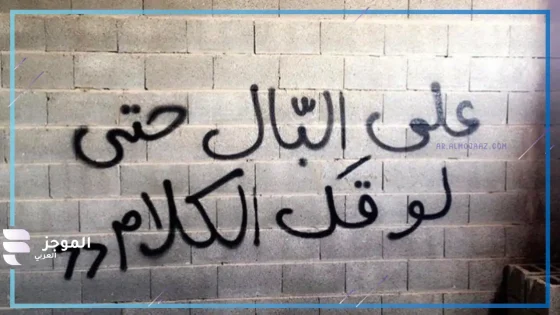 على البّال حتى
AR.ALMOJAAZ.COM
لو قَل الكلام ,,
الموجز
العربي